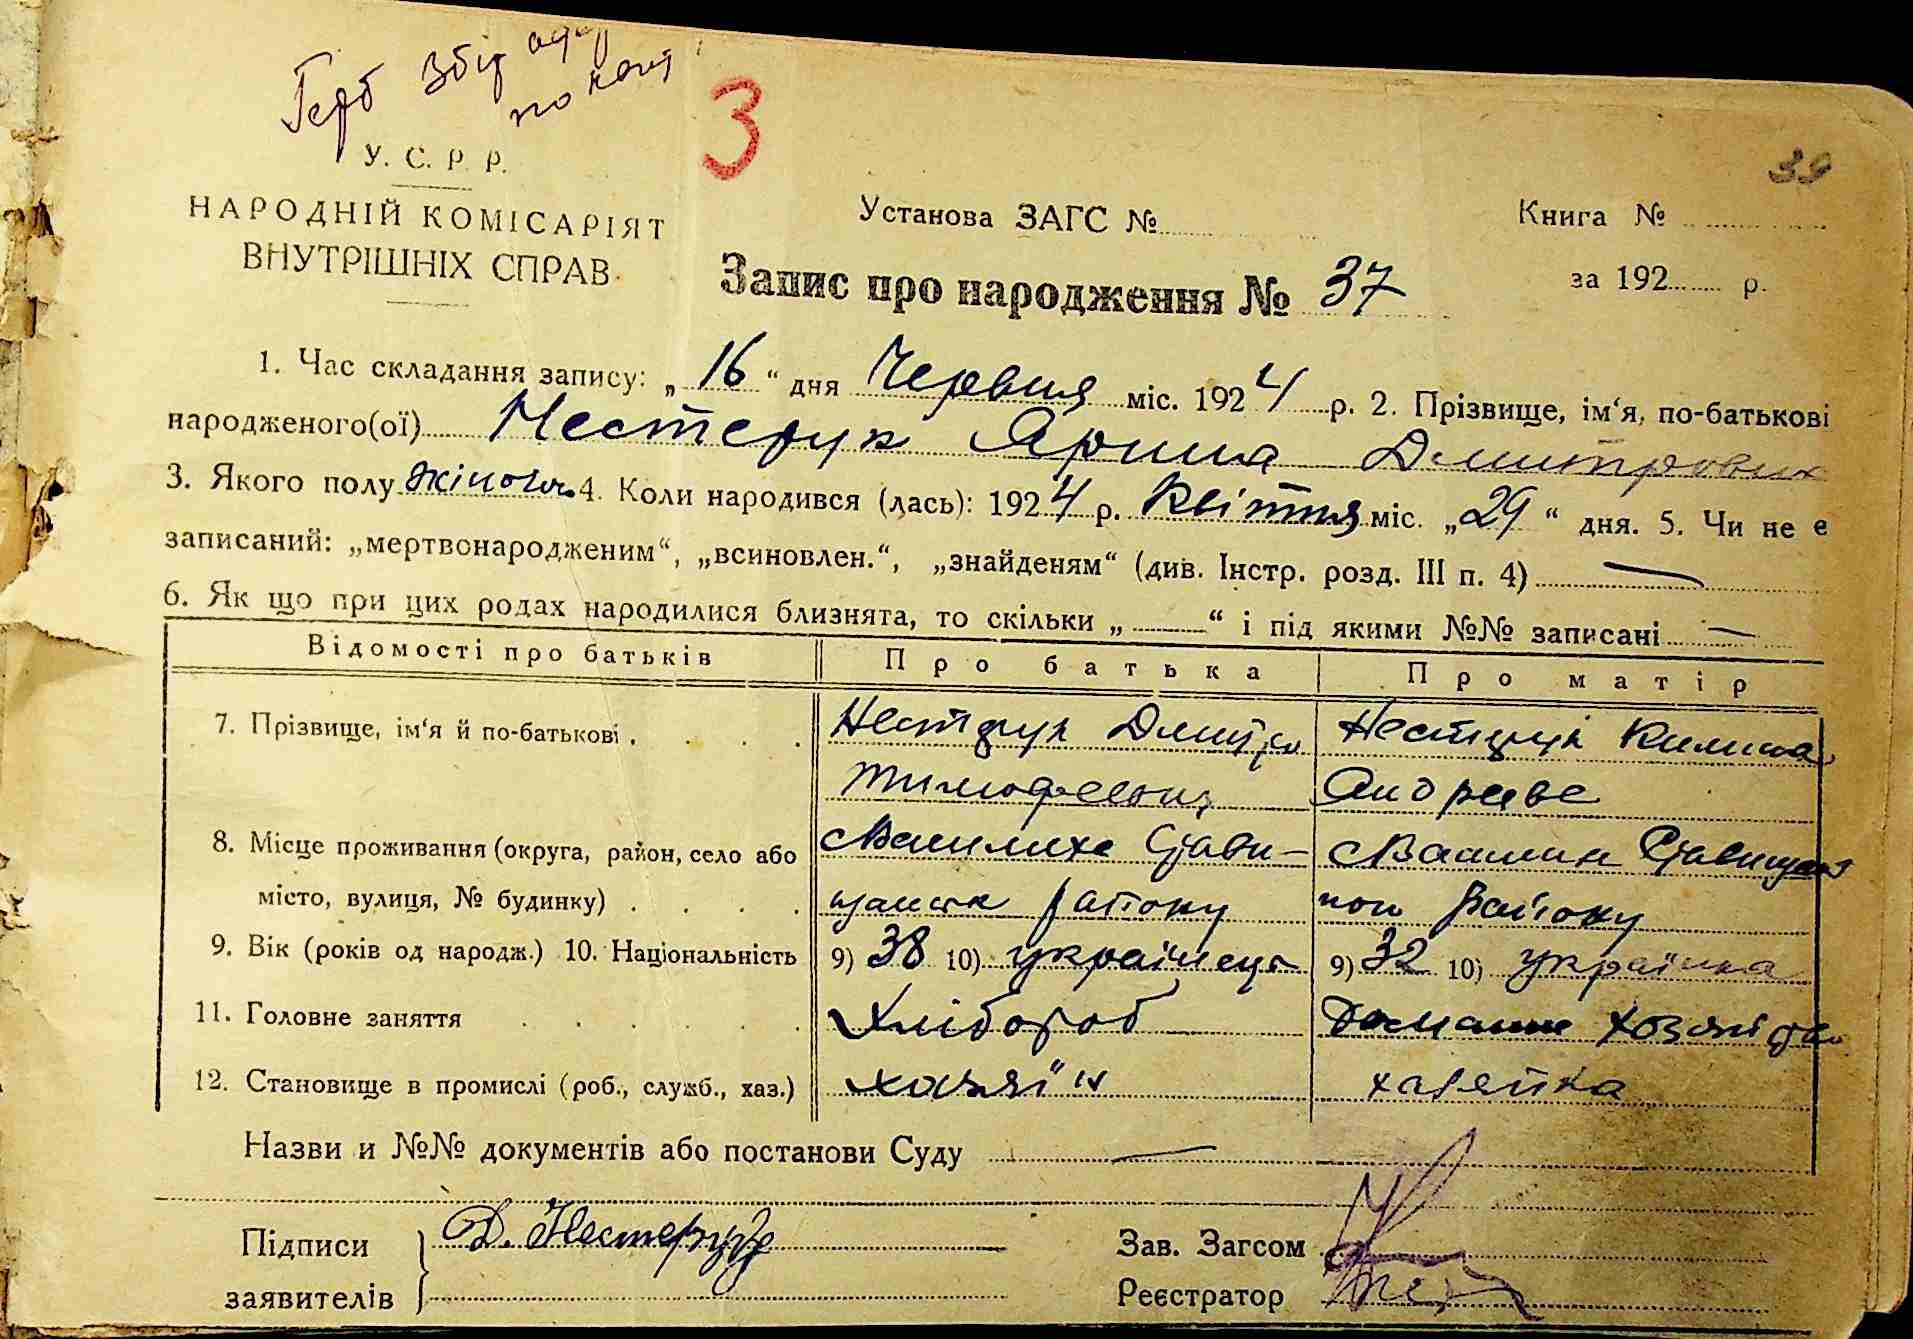 Герб Збір
по
3
У. С. Р. Р.
39
НАРОДНІЙ КОМІСАРІЯТ
ВНУТРІШНІХ СПРАВ
Установа ЗАГС №
Книга №
за 192 р.
Запис про народження № 37
1. Час складання запису: „16“ дня Червня міс. 1924 р. 2. Прізвище, ім‘я, по-батькові
народженого(ої) Нестерук Ярина Дмитрович
3. Якого полу жіноча 4. Коли народився (лась): 1924 р. Квітня міс. „29“ дня. 5. Чи не є
записаний: „мертвонародженим“, „всиновлен.“, „знайденям“ (див. Інстр. розд. III п. 4) —
6. Як що при цих родах народилися близнята, то скільки „—“ і під якими №№ записані —
Відомості про батьків Про батька Про матір
7. Прізвище, ім‘я й по-батькові . . . . Нестерук Дмитро Нестерук Килина
Тимофеевич Андреева
8. Місце проживання (округа, район, село або Василиха Стави-
місто, вулиця, № будинку) . . . . району району
9. Вік (років од народж.) 10. Національність 9) 38 10) українець 9) 32 10) українка
11. Головне заняття . . . . . Хлібороб Домашне
12. Становище в промислі (роб., служб., хаз.) хазяїн хазяйка
Назви и №№ документів або постанови Суду —
Підписи Д. Нестерук Зав. Загсом
заявителів Реєстратор